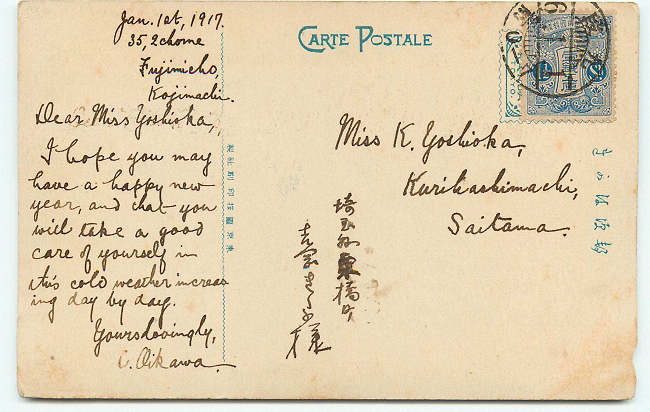 Jan. 1st, 1917.
35, 2chome
Fujimicho,
Kojimachi.
Dear Miss Yoshioka,
I hope you may
have a happy new
year, and that you
will take a good
care of yourself in
this cold weather increas
ing day by day.
Yours lovingly,
C. Oikawa.
CARTE POSTALE
Miss K. Yoshioka,
Kurihashimachi,
Saitama.
埼玉縣栗橋町
吉岡
様